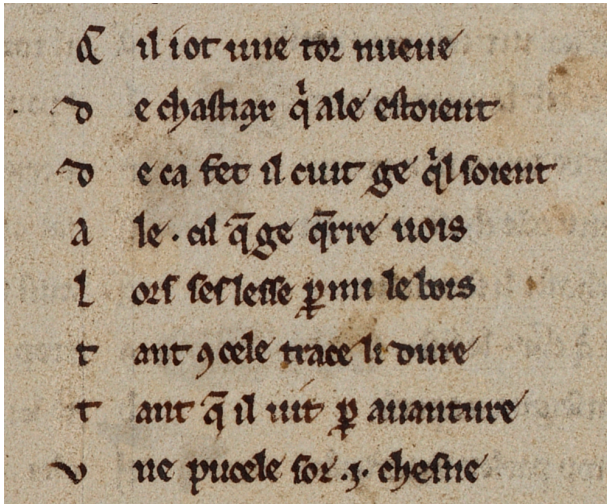 C il iot une tor nueue
d e chastiax q̍ ale estoient
d e ca fet il cuit ge q̍l soient
a le · cil q̄ ge q̄rre uois
l ors ses lesse p̱mi le bois
t ant ꝯ cele trace li dure
t ant q̄ il uit p̱ auanture
v ne pucele soz .i. chesne